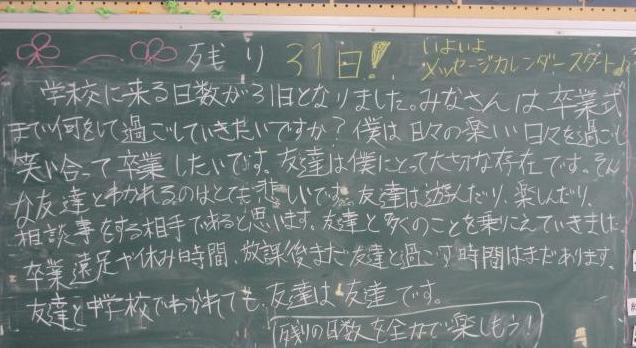 残り 31日!
いよいよ
メッセージカレンダースタート♪
学校に来る日数が31日となりました。みなさんは卒業式
まで何をして過ごしていきたいですか？僕は日々の楽しい日々を過ごし
笑い合って卒業したいです。友達は僕にとって大切な存在です。そん
な友達とわかれるのはとても悲しいです。友達は遊んだり、楽しんだり、
相談事をする相手であると思います。友達と多くのことを乗りこえていきました。
卒業遠足や休み時間、放課後まだ友達と過ごす時間はまだあります。
友達と中学校でわかれても、友達は友達です。
残りの日数を全力で楽しもう！